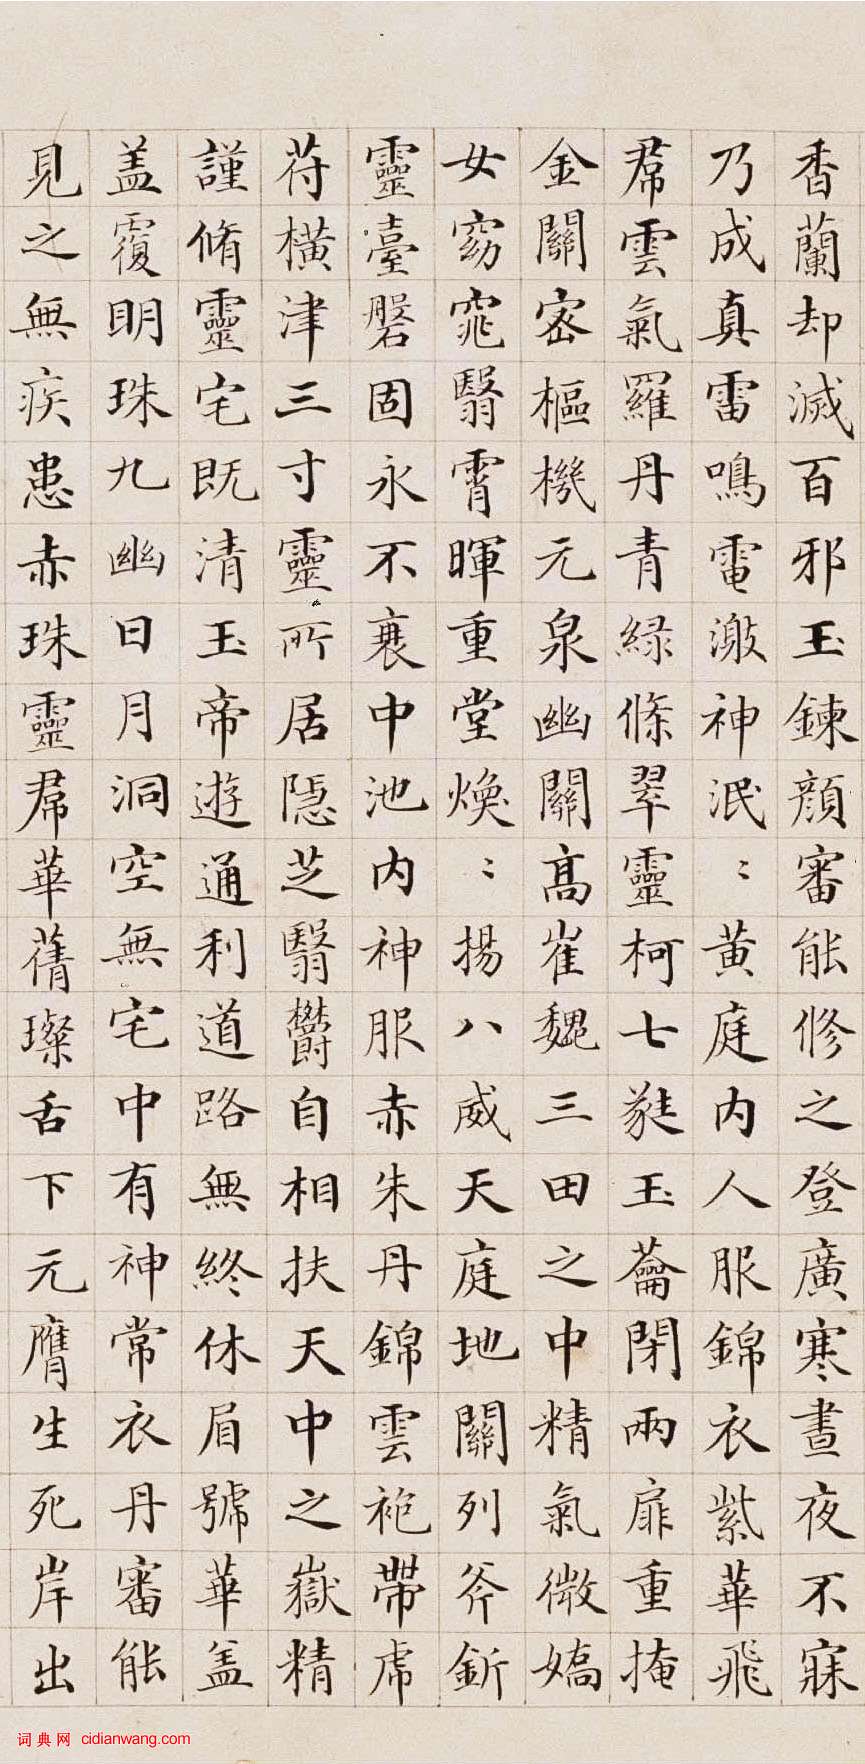 香蘭却滅百邪玉鍊顔審能修之登廣寒晝夜不寐
乃成真雷鳴電激神泯〻黄庭内人服錦衣紫華飛
帬雲氣羅丹青緑條翠靈柯七蕤玉蘥閉兩扉重掩
金關密樞機元泉幽關髙崔巍三田之中精氣微嬌
女窈窕翳霄暉重堂煥〻揚八威天庭地關列斧釿
靈臺磐固永不衰中池内神服赤朱丹錦雲袍帶虎
苻横津三寸靈所居隠芝翳欝自相扶天中之嶽精
謹脩靈宅既清玉帝遊通利道路無終休眉號華盖
盖覆明珠九幽日月洞空無宅中有神常衣丹審能
見之無疾患赤珠靈帬華蒨璨舌下元膺生死岸出
词典网 cidianwang.com